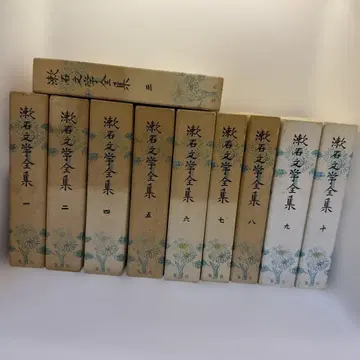 漱石文学全集 三
漱石文学全集 一
漱石文学全集 二
漱石文学全集 四
漱石文学全集 五
漱石文学全集 六
漱石文学全集 七
漱石文学全集 八
漱石文学全集 九
漱石文学全集 十